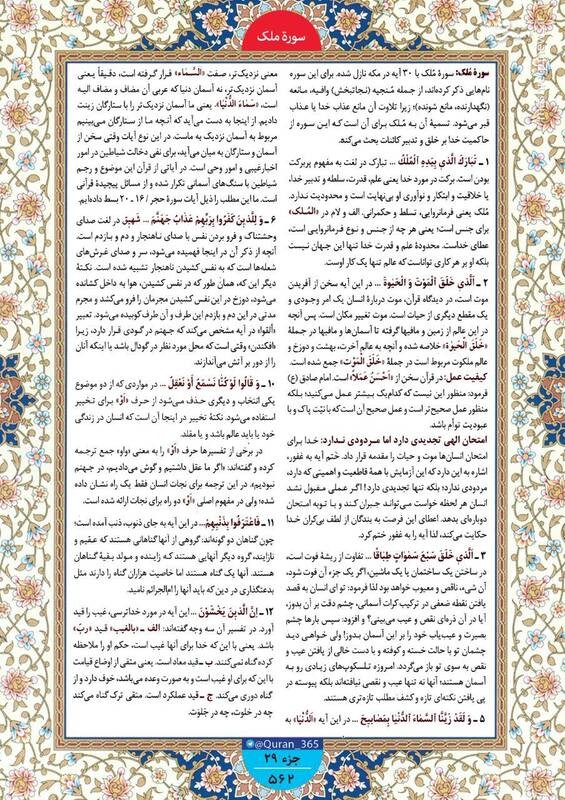 سورهٔ ملک
سورهٔ مُلک: سورهٔ مُلک با ۳۰ آیه در مکه نازل شده. برای این سوره
نام‌هایی ذکر کرده‌اند، از جمله مُنجیه (نجاتبخش) واقیه، مانعه
(نگهدارنده، مانع شونده)؛ زیرا تلاوت آن مانع عذاب خدا یا عذاب
قبر می‌شود. تسمیهٔ آن به مُلک برای آن است که این سوره از
حاکمیت خدا بر خلق و تدبیر کائنات بحث می‌کند.
۱ ـ تَبَارَكَ الَّذِي بِيَدِهِ الْمُلْكُ ... تبارک در لغت به مفهوم پربرکت
بودن است. برکت در مورد خدا یعنی علم، قدرت، سلطه و تدبیر خدا،
یا خلاقیت و ابتکار و نوآوری او بی‌نهایت است و محدودیت ندارد.
مُلک یعنی فرمانروایی، تسلط و حکمرانی. الف و لام در «المُلک»
برای جنس است؛ یعنی هر چه از جنس و نوع فرمانروایی است،
عطای خداست. محدودهٔ علم و قدرت خدا تنها این جهان نیست
بلکه او بر هر کاری تواناست که عالم تنها یک کار اوست.
۲ ـ اَلَّذِي خَلَقَ الْمَوْتَ وَ الْحَيٰوةَ ... در این آیه سخن از آفریدن
موت است، در دیدگاه قرآن، موت دربارهٔ انسان یک امر وجودی و
یک مقطع دیگری از حیات است. موت تغییر مکان است. پس آنچه
در این عالم از زمین و مافیها گرفته تا آسمان‌ها و مافیها در جملهٔ
«خَلَقَ الْحَيٰوةَ» خلاصه شده و آنچه به عالم آخرت، بهشت و دوزخ و
عالم ملکوت مربوط است در جملهٔ «خَلَقَ الْمَوْتَ» جمع شده است.
کیفیت عمل: در قرآن سخن از «اَحْسَنُ عَمَلاً» است. امام صادق (ع)
فرمود: منظور این نیست که کدام‌یک بیشتر عمل می‌کنید؛ بلکه
منظور عمل صحیح‌تر است و عمل صحیح آن است که با نیّت پاک و با
عبودیت توأم باشد.
امتحان الهی تجدیدی دارد اما مردودی ندارد: خدا برای
امتحان انسان‌ها موت و حیات را مقدمه قرار داد. ختم آیه به غفور،
اشاره به این دارد که این آزمایش با همهٔ قاطعیت و اهمیتی که دارد،
مردودی ندارد؛ بلکه تنها تجدیدی دارد! اگر عملی مقبول نشد
انسان هر لحظه خواست می‌تواند جبران کند و با توبه امتحان
دوباره‌ای بدهد. اعطای این فرصت به بندگان از لطف بی‌کران خدا
حکایت می‌کند، لذا آیه را به غفور ختم کرد.
۳ ـ اَلَّذِي خَلَقَ سَبْعَ سَمٰوَاتٍ طِبَاقًا ... تفاوت از ریشهٔ فوت است،
در ساختن یک ساختمان یا یک ماشین، اگر یک جزء آن فوت شود،
آن شیء، ناقص و معیوب خواهد بود لذا فرمود: تو ای انسان به قصد
یافتن نقطهٔ ضعفی در ترکیب کرات آسمانی، چشم دقت بر آن بدوز،
آیا در آن ذره‌ای نقص و عیب می‌بینی؟ و افزود: سپس بارها چشم
بصیرت و عیب‌یاب خود را بر این آسمان بدوز! ولی خواهی دید
چشمان تو با حالت خسته و کوفته و با دست خالی از یافتن عیب و
نقص به سوی تو باز می‌گردد. امروزه تلسکوپ‌های زیادی رو به
آسمان هستند؛ آنها نه تنها عیب و نقصی نیافته‌اند بلکه پیوسته در
پی یافتن نکته‌ای تازه و کشف مطلب تازه‌تری هستند.
۵ ـ وَ لَقَدْ زَيَّنَّا السَّمَاءَ الدُّنْيَا بِمَصَابِيحَ ... در این آیه «اَلدُّنْيَا» به
معنی نزدیک‌تر، صفت «السَّمَاء» قرار گرفته است، دقیقاً یعنی
آسمان نزدیک‌تر، نه آسمان دنیا که عربی آن مضاف و مضاف الیه
است، «سَمَاءُ الدُّنْيَا». یعنی ما آسمان نزدیک‌تر را با ستارگان زینت
دادیم. از اینجا به دست می‌آید که آنچه ما از ستارگان می‌بینیم
مربوط به آسمان نزدیک به ماست. در این نوع آیات وقتی سخن از
آسمان و ستارگان به میان می‌آید، برای نفی دخالت شیاطین در امور
اخبار غیبی و امور وحی است. در آیاتی از قرآن این موضوع و رجم
شیاطین با سنگ‌های آسمانی تکرار شده و از مسائل پیچیدهٔ قرآنی
است. ما این مطلب را ذیل آیات سورهٔ حجر / ۱۶ ـ ۲۰ بسط داده‌ایم.
۶ ـ وَ لِلَّذِينَ كَفَرُوا بِرَبِّهِمْ عَذَابُ جَهَنَّمَ ... شهیق در لغت صدای
وحشتناک و فرو بردن نفس با صدای ناهنجار و دم و بازدم است.
آنچه از ذکر آن در اینجا فهمیده می‌شود، سر و صدای غرش‌های
شعله‌ها است که به نفس کشیدن ناهنجار تشبیه شده است. نکتهٔ
دیگر این که، همان طور که در نفس کشیدن، هوا به داخل کشانده
می‌شود، دوزخ در این نفس کشیدن مجرمان را فرو می‌کشد و مجرم
مدتی در این دم و بازدم این طرف و آن طرف کوبیده می‌شود. تعبیر
«أُلقوا» در آیه مشخص می‌کند که جهنم در گودی قرار دارد، زیرا
«افکندن» وقتی است که محل مورد نظر در گودال باشد یا اینکه آنان
را از دور بر آتش می‌اندازند.
۱۰ ـ وَ قَالُوا لَوْ كُنَّا نَسْمَعُ أَوْ نَعْقِلُ ... در مواردی که از دو موضوع
یکی انتخاب و دیگری حذف می‌شود از حرف «أَوْ» برای تخییر
استفاده می‌شود. نکتهٔ تخییر در اینجا آن است که انسان در زندگی
خود یا باید عالم باشد و یا مقلد.
در برخی از تفسیرها حرف «أَوْ» را به معنی «واو» جمع ترجمه
کرده و گفته‌اند: «اگر ما عقل داشتیم و گوش می‌دادیم، در جهنم
نبودیم». در این ترجمه برای نجات انسان فقط یک راه نشان داده
شده؛ ولی در مفهوم اصلی «أَوْ» دو راه برای نجات ارائه شده است.
۱۱ ـ فَاعْتَرَفُوا بِذَنْبِهِمْ... در این آیه به جای ذنوب، ذنب آمده است؛
چون گناهان دو گونه‌اند: گروهی از آنها گناهانی هستند که عقیم و
نازایند، گروه دیگر آنهایی هستند کـه زاینده و مولد بقیهٔ گناهان
هستند. آنها یک گناه هستند اما خاصیت هزاران گناه را دارند مثل
بدعتگذاری در دین که باید آنها را ام‌الجرائم نامید.
۱۲ ـ اِنَّ الَّذِينَ يَخْشَوْنَ... در این آیه در مورد خداترسی، غیب را قید
آورد. در تفسیر آن سه وجه گفته‌اند: الف ـ «بالغیب» قید «ربّ»
باشد. یعنی با این که خدا برای آنها غیب است، حکم او را ملاحظه
کرده گناه نمی‌کنند. ب ـ قید معاد است. یعنی متقی از اوضاع قیامت
با این که برای او غیب است و به صورت وعده می‌باشد، خوف دارد و از
گناه دوری می‌کند. ج ـ قید عملکرد است. متقی ترک گناه می‌کند
چه در خلوت، چه در جَلوَت.
@Quran_365
جزء ۲۹
۵۶۲